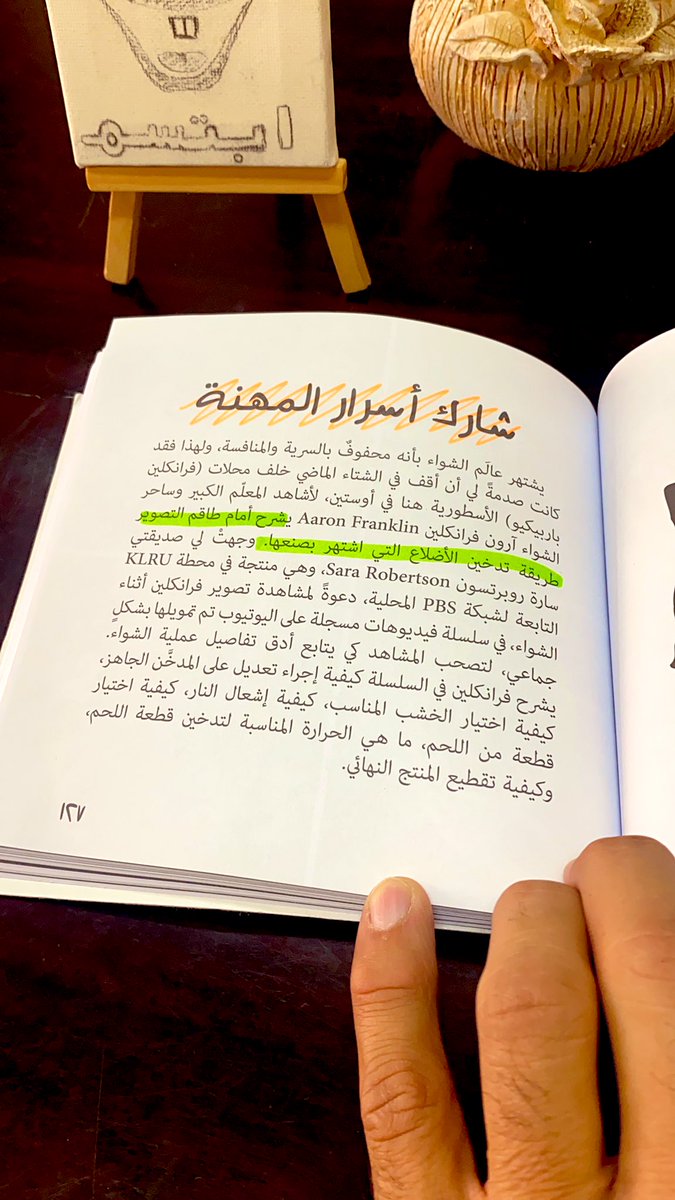 ابتسم
شارك أسرار المهنة
يشتهر عالَم الشواء بأنه محفوفٌ بالسرية والمنافسة، ولهذا فقد
كانت صدمةً لي أن أقف في الشتاء الماضي خلف محلات (فرانكلين
باربيكيو) الأسطورية هنا في أوستين، لأشاهد المعلّم الكبير وساحر
الشواء آرون فرانكلين Aaron Franklin يشرح أمام طاقم التصوير
طريقة تدخين الأضلاع التي اشتهر بصنعها. وجهتْ لي صديقتي
سارة روبرتسون Sara Robertson، وهي منتجة في محطة KLRU
التابعة لشبكة PBS المحلية، دعوةً لمشاهدة تصوير فرانكلين أثناء
الشواء، في سلسلة فيديوهات مسجلة على اليوتيوب تم تمويلها بشكلٍ
جماعي، لتصحب المشاهد كي يتابع أدق تفاصيل عملية الشواء.
يشرح فرانكلين في السلسلة كيفية إجراء تعديل على المدخَّن الجاهز،
كيفية اختيار الخشب المناسب، كيفية إشعال النار، كيفية اختيار
قطعة من اللحم، ما هي الحرارة المناسبة لتدخين قطعة اللحم،
وكيفية تقطيع المنتج النهائي.
١٢٧